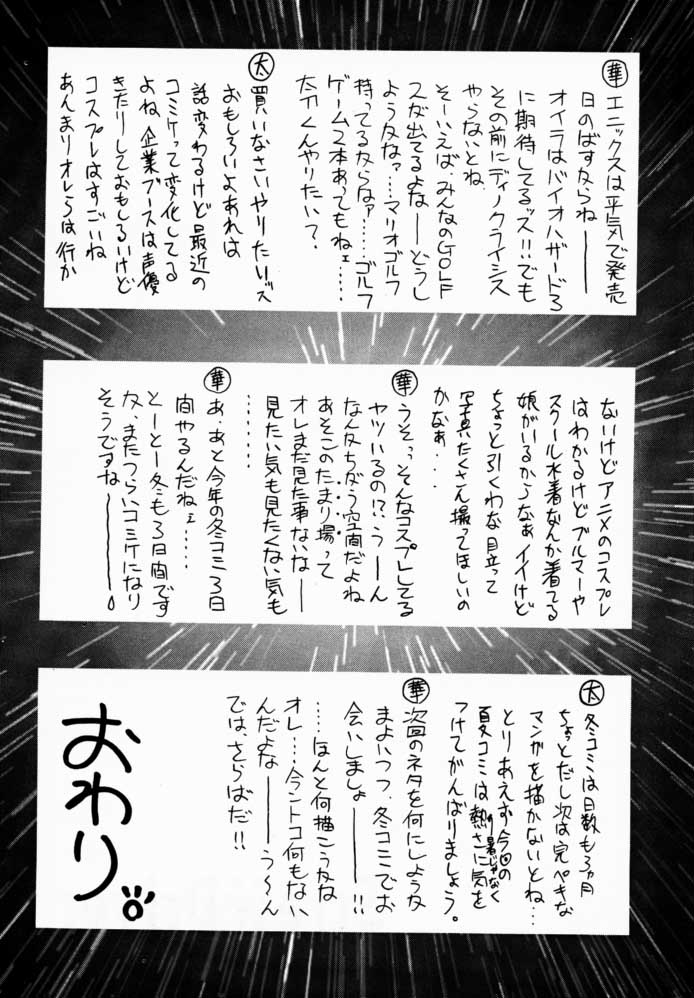 華
エニックスは平気で発売
日のばすからねー
オイラはバイオハザード3
に期待してるッス!!でも
その前にディノクライシス
やらないとね、
そーいえば、みんなのGOLF
スか出てるよなーどうし
ようかなァ…マリオゴルフ
持ってるからなァ……ゴルフ
ゲーム2本あってもねェ……
太刀くんやりたい?
太
買いなさいやりたいッス
おもしろいよあれは
話変わるけど最近の
コミケって変化してる
よね、企業ブースは声優
きたりしておもしろいけど
コスプレはすごいね
あんまりオレらは行か
ないけどアニメのコスプレ
はわかるけどブルマーや
スクール水着なんか着てる
娘がいるからなぁイイけど
ちょっと引くわな、目立って
写真たくさん撮ってほしいの
かなぁ・・・
華
うそっっそんなコスプレしてる
ヤツいるの!?うーん
なんかちがう空間だよね
あそこのたまり場って
オレまだ見た事ないなー
見たい気も見たくない気も
・・・・・・
華
あ、あと今年の冬コミ3日
間やるんだねェ……
とーとー冬も3日間です
か、またつらいコミケになり
そうですなー。
太
冬コミは日数も3ヵ月
ちょっとだし次は完ペキな
マンガを描かないとね…
とりあえず今回の
夏コミは熱さに気を
り暑じゃなく
つけてがんばりましょう。
華
次回のネタを何にしような
まよいつつ、冬コミでお
会いしましょー!!
……ほんと何描こうかな
オレ…今ントコ何もない
んだよなーう〜ん
では、さらばだ!!
おわり。